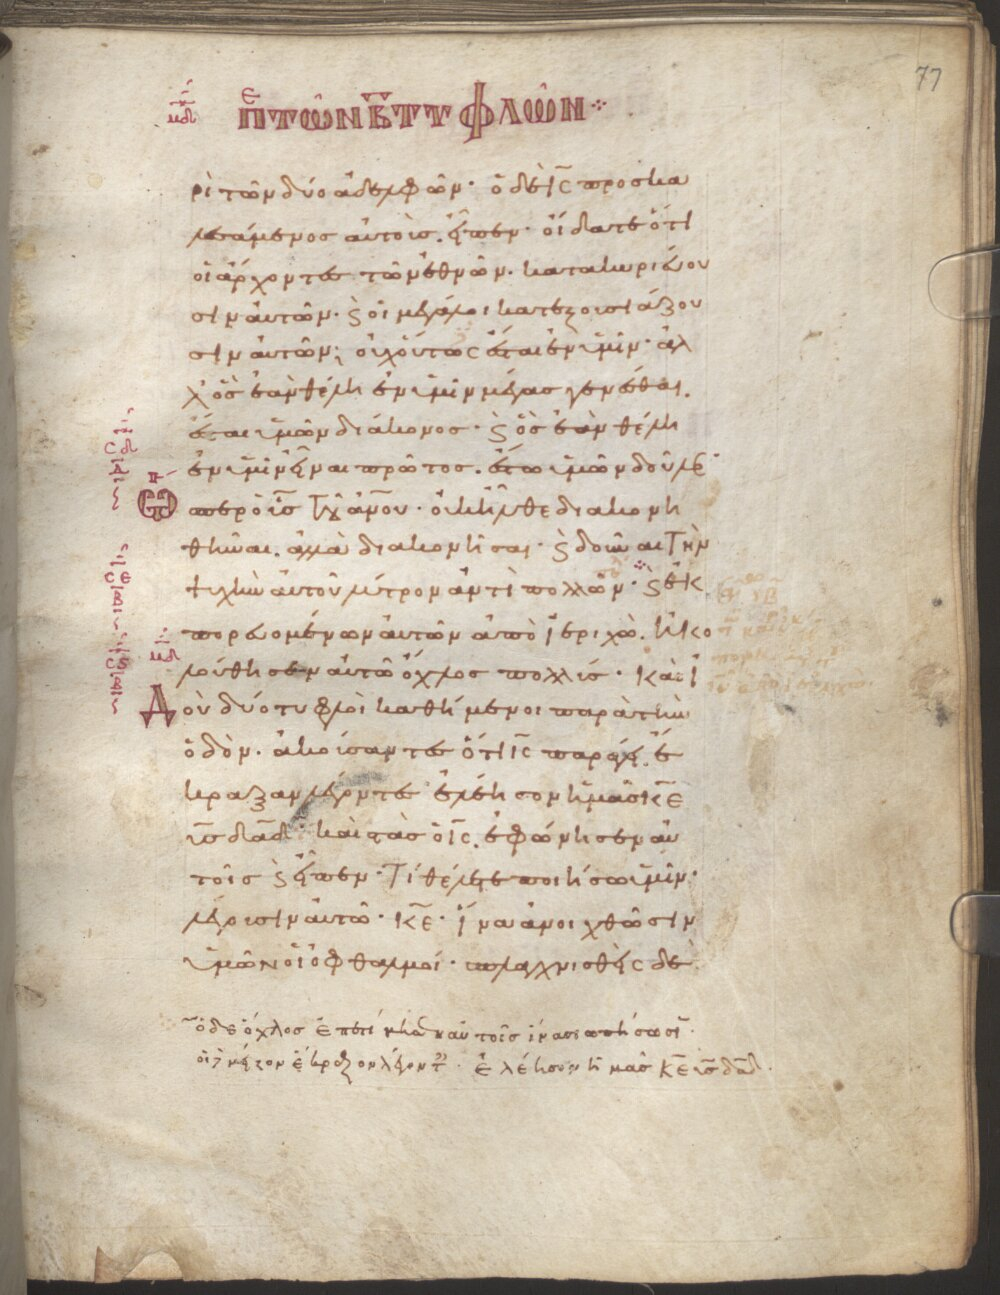 77
ΠΕ ΤΩΝ Β ΤΥΦΛΩΝ
ρὶ τῶν δύο ἀδελφῶν· ὁ δὲ ις προσκα
λεσάμενος αὐτοὺς. εἶπεν· οἴδατε ὅτι
οἱ ἄρχοντες τῶν ἐθνῶν. κατακυριεύου
σιν αὐτῶν· ϗ οἱ μεγάλοι κατεξουσιάζου
σιν αὐτῶν· οὐχ οὕτως ἔσται ἐν ὑμῖν· ἀλ
λ' ὃς ἐὰν θέλη ἐν ὑμῖν μέγας γενέσθαι.
ἔσται ὑμῶν διάκονος· ϗ ὃς ἐὰν θέλη
ἐν ὑμῖν εἶναι πρῶτος. ἔστω ὑμῶν δοῦλο
Ὥσπερ ὁ ις τοῦ ανου· οὐκ ἦλθε διακονη
θῆναι. ἀλλὰ διακονῆσαι· ϗ δοῦναι τὴν
ψυχὴν αὐτοῦ λύτρον ἀντὶ πολλῶν· ϗ ἐκ
πορευομένων αὐτῶν ἀπὸ ἱεριχὼ. ἠκο
λούθησεν αὐτῶ ὄχλος πολλύς· Καὶ ἰ
Δοὺ δύο τυφλοὶ καθήμενοι παρὰ τὴν
ὁδὸν. ἀκούσαντες ὅτι ις παράγει. ἔ
κραξαν λέγοντες ἐλέησον ἡμᾶς κε
υς δαδ· καὶ στὰς ὁ ις. ἐφώνησεν αὐ
τοὺς ϗ εἶπεν· Τί θέλετε ποιήσω ὑμῖν·
λέγουσιν αὐτῶ· κε· ἵνα ἀνοιχθῶσιν
ἡμῶν οἱ ὀφθαλμοί· σπλαγχνισθεὶς δὲ
ὁ δὲ ὄχλος ἐπετίμησαν αὐτοῖς ἵνα σιωπήσωσι·
οἱ μεῖζον ἔκραζον λέγοντ· ἐλέησον ἡμᾶς κε υς δαδ·